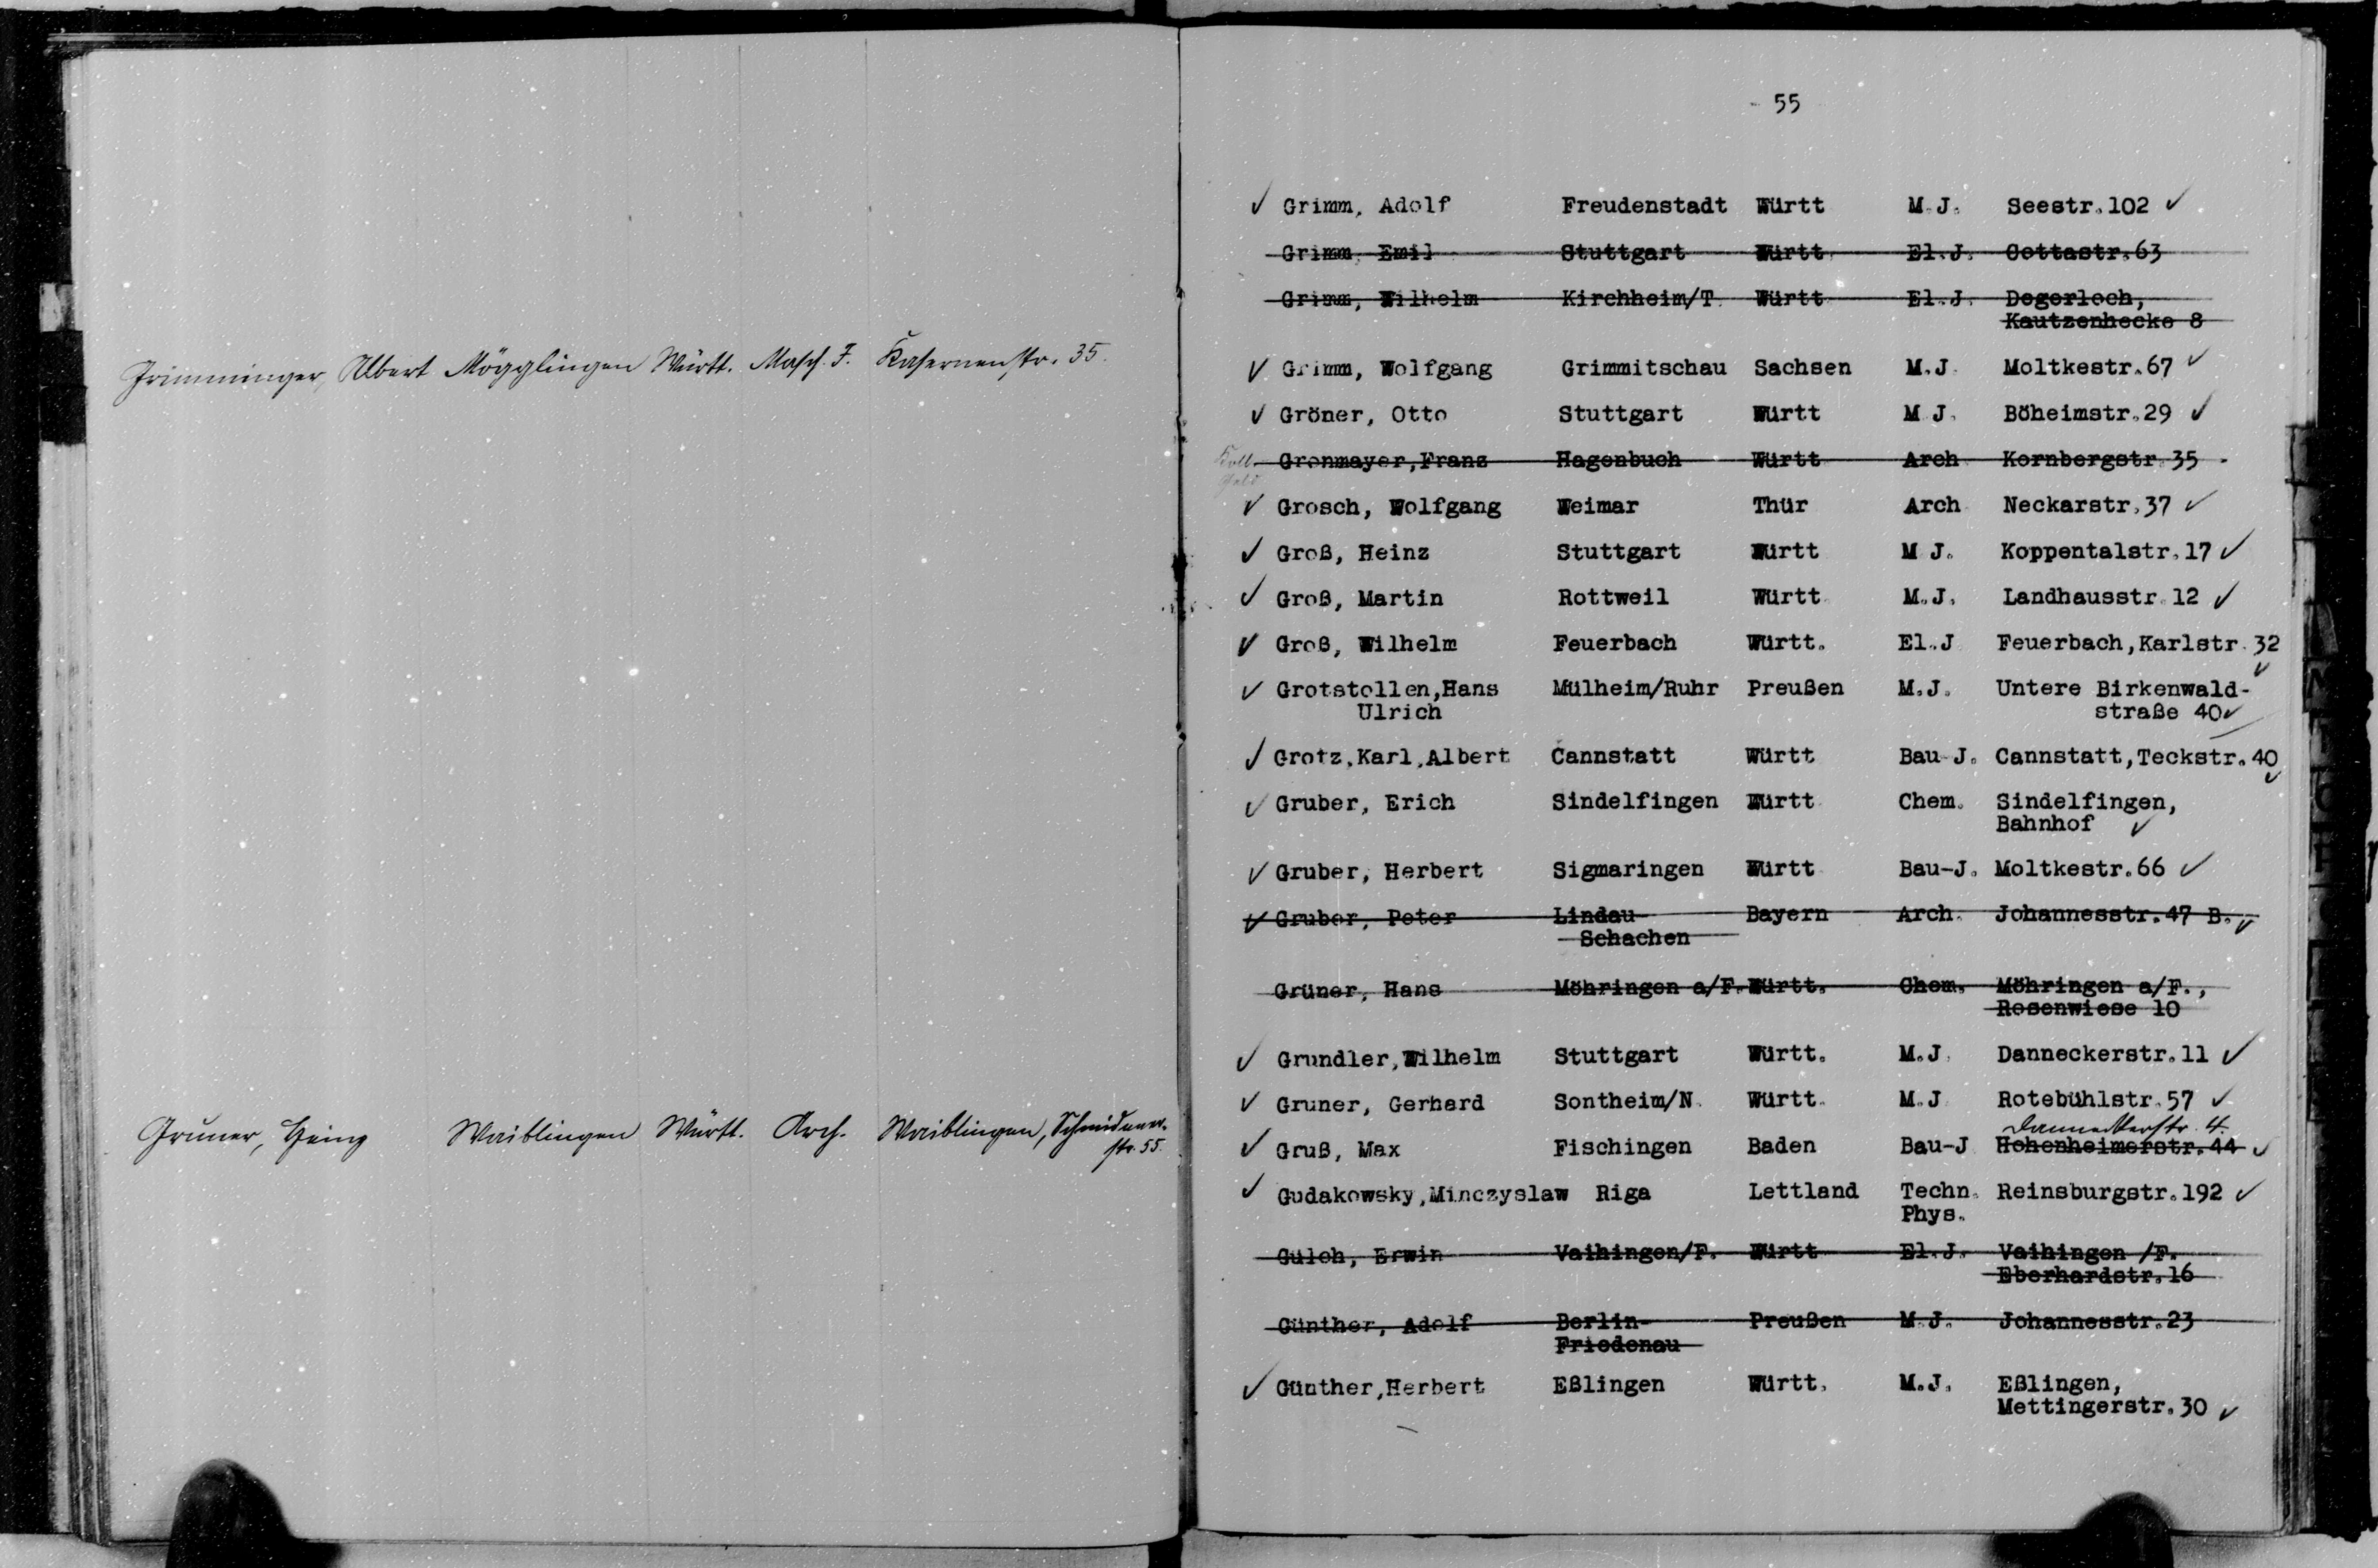 Grimminger, Albert Mögglingen Württ. Masch. I. Kasernenstr. 35.
Gruner, Heinz Waiblingen Württ. Arch. Waiblingen, Schmidener-
str. 55.
55
Grimm, Adolf Freudenstadt Württ M.J. Seestr.102
Grimm, Emil Stuttgart Württ. El.J. Cottastr.63
Grimm, Wilhelm Kirchheim/T. Württ El.J. Degerloch,
Kautzenhecke 8
Grimm, Wolfgang Grimmitschau Sachsen M.J. Moltkestr.67
Gröner, Otto Stuttgart Württ M J. Böheimstr.29
Gronmayer,Franz Hagenbuch Württ Arch Kornbergstr.35
Grosch, Wolfgang Weimar Thür Arch Neckarstr.37
Groß, Heinz Stuttgart Württ M J. Koppentalstr.17
Groß, Martin Rottweil Württ M.J. Landhausstr.12
Groß, Wilhelm Feuerbach Württ. El.J Feuerbach,Karlstr.32
Grotstollen,Hans Mülheim/Ruhr Preußen M.J. Untere Birkenwald-
Ulrich straße 40
Grotz,Karl,Albert Cannstatt Württ Bau-J. Cannstatt,Teckstr.40
Gruber, Erich Sindelfingen Württ Chem. Sindelfingen,
Bahnhof
Gruber, Herbert Sigmaringen Württ Bau-J. Moltkestr.66
Gruber, Peter Lindau- Bayern Arch. Johannesstr.47 B.
Schachen
Grüner, Hans Möhringen a/F. Württ. Chem. Möhringen a/F.,
Rosenwiese 10
Grundler,Wilhelm Stuttgart Württ. M.J. Danneckerstr.11
Gruner, Gerhard Sontheim/N. Württ. M.J Rotebühlstr.57
Danneckerstr. 4.
Gruß, Max Fischingen Baden Bau-J Hohenheimerstr.44
Gudakowsky,Minczyslaw Riga Lettland Techn. Reinsburgstr.192
Phys.
Gülch, Erwin Vaihingen/F. Württ El.J. Vaihingen /F.
Eberhardstr.16
Günther, Adolf Berlin- Preußen M.J. Johannesstr.23
Friedenau
Günther,Herbert Eßlingen Württ. M.J. Eßlingen,
Mettingerstr.30